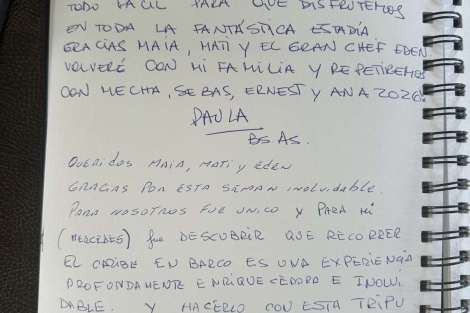 TODO FÁCIL PARA QUE DISFRUTEMOS
EN TODA LA FANTÁSTICA ESTADÍA
GRACIAS MAIA, MATI Y EL GRAN CHEF EDEN
VOLVERÉ CON MI FAMILIA Y REPETIREMOS
CON MECHA, SEBAS, ERNEST Y ANA 2026.
PAULA
BS AS.
QUERIDOS MAIA, MATI y EDEN
GRACIAS POR ESTA SEMAN INOLVIDABLE.
PARA NOSOTROS FUE UNICO Y PARA MI
(MERCEDES) fue DESCUBRIR QUE RECORRER
EL CARIBE EN BARCO ES UNA EXPERIENCIA
PROFUNDAMENTE ENRIQUECEDORA E INOLVI
DABLE. Y HACERLO CON ESTA TRIPU